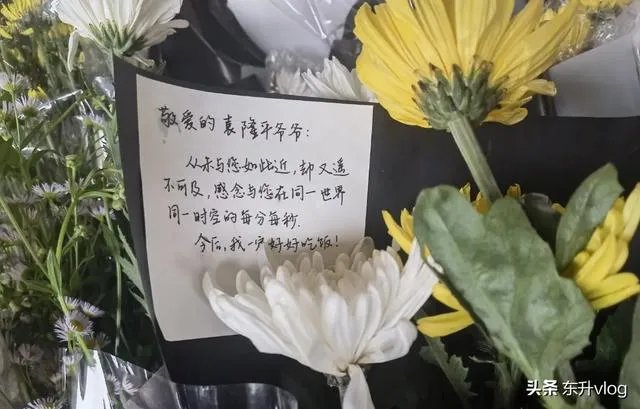 敬爱的袁隆平爷爷：
从未与您如此近，却又遥
不可及，感念与您在同一世界
同一时空的每分每秒.
今后，我一定好好吃饭！
头条 东升vlog